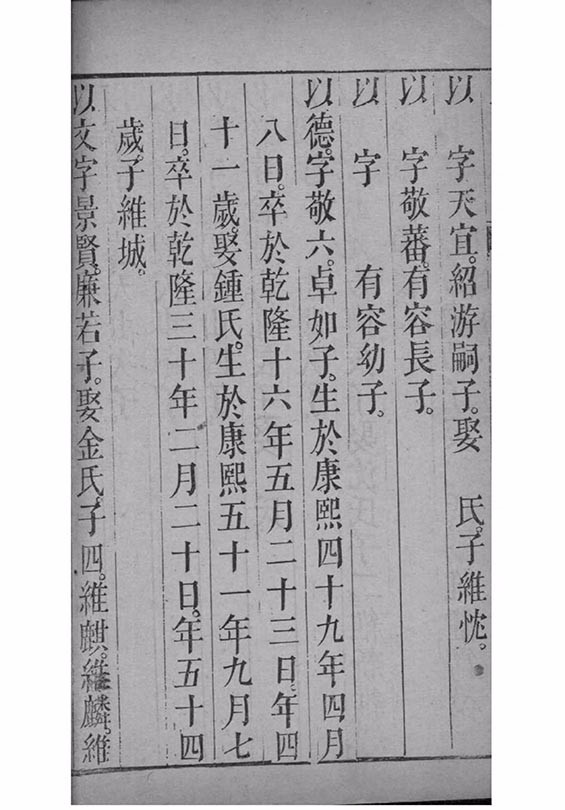 以　字天宜。紹游嗣子。娶　氏。子維忱。
以　字敬蕃。有容長子。
以　字　　有容幼子。
以德。字敬六。卓如子。生於康熙四十九年四月
八日。卒於乾隆十六年五月二十三日。年四
十一歲。娶鍾氏。生於康熙五十一年九月七
日。卒於乾隆三十年二月二十日。年五十四
歲。子維城。
以文字景賢。廉若子。娶金氏。子四。維麒。維麟。維